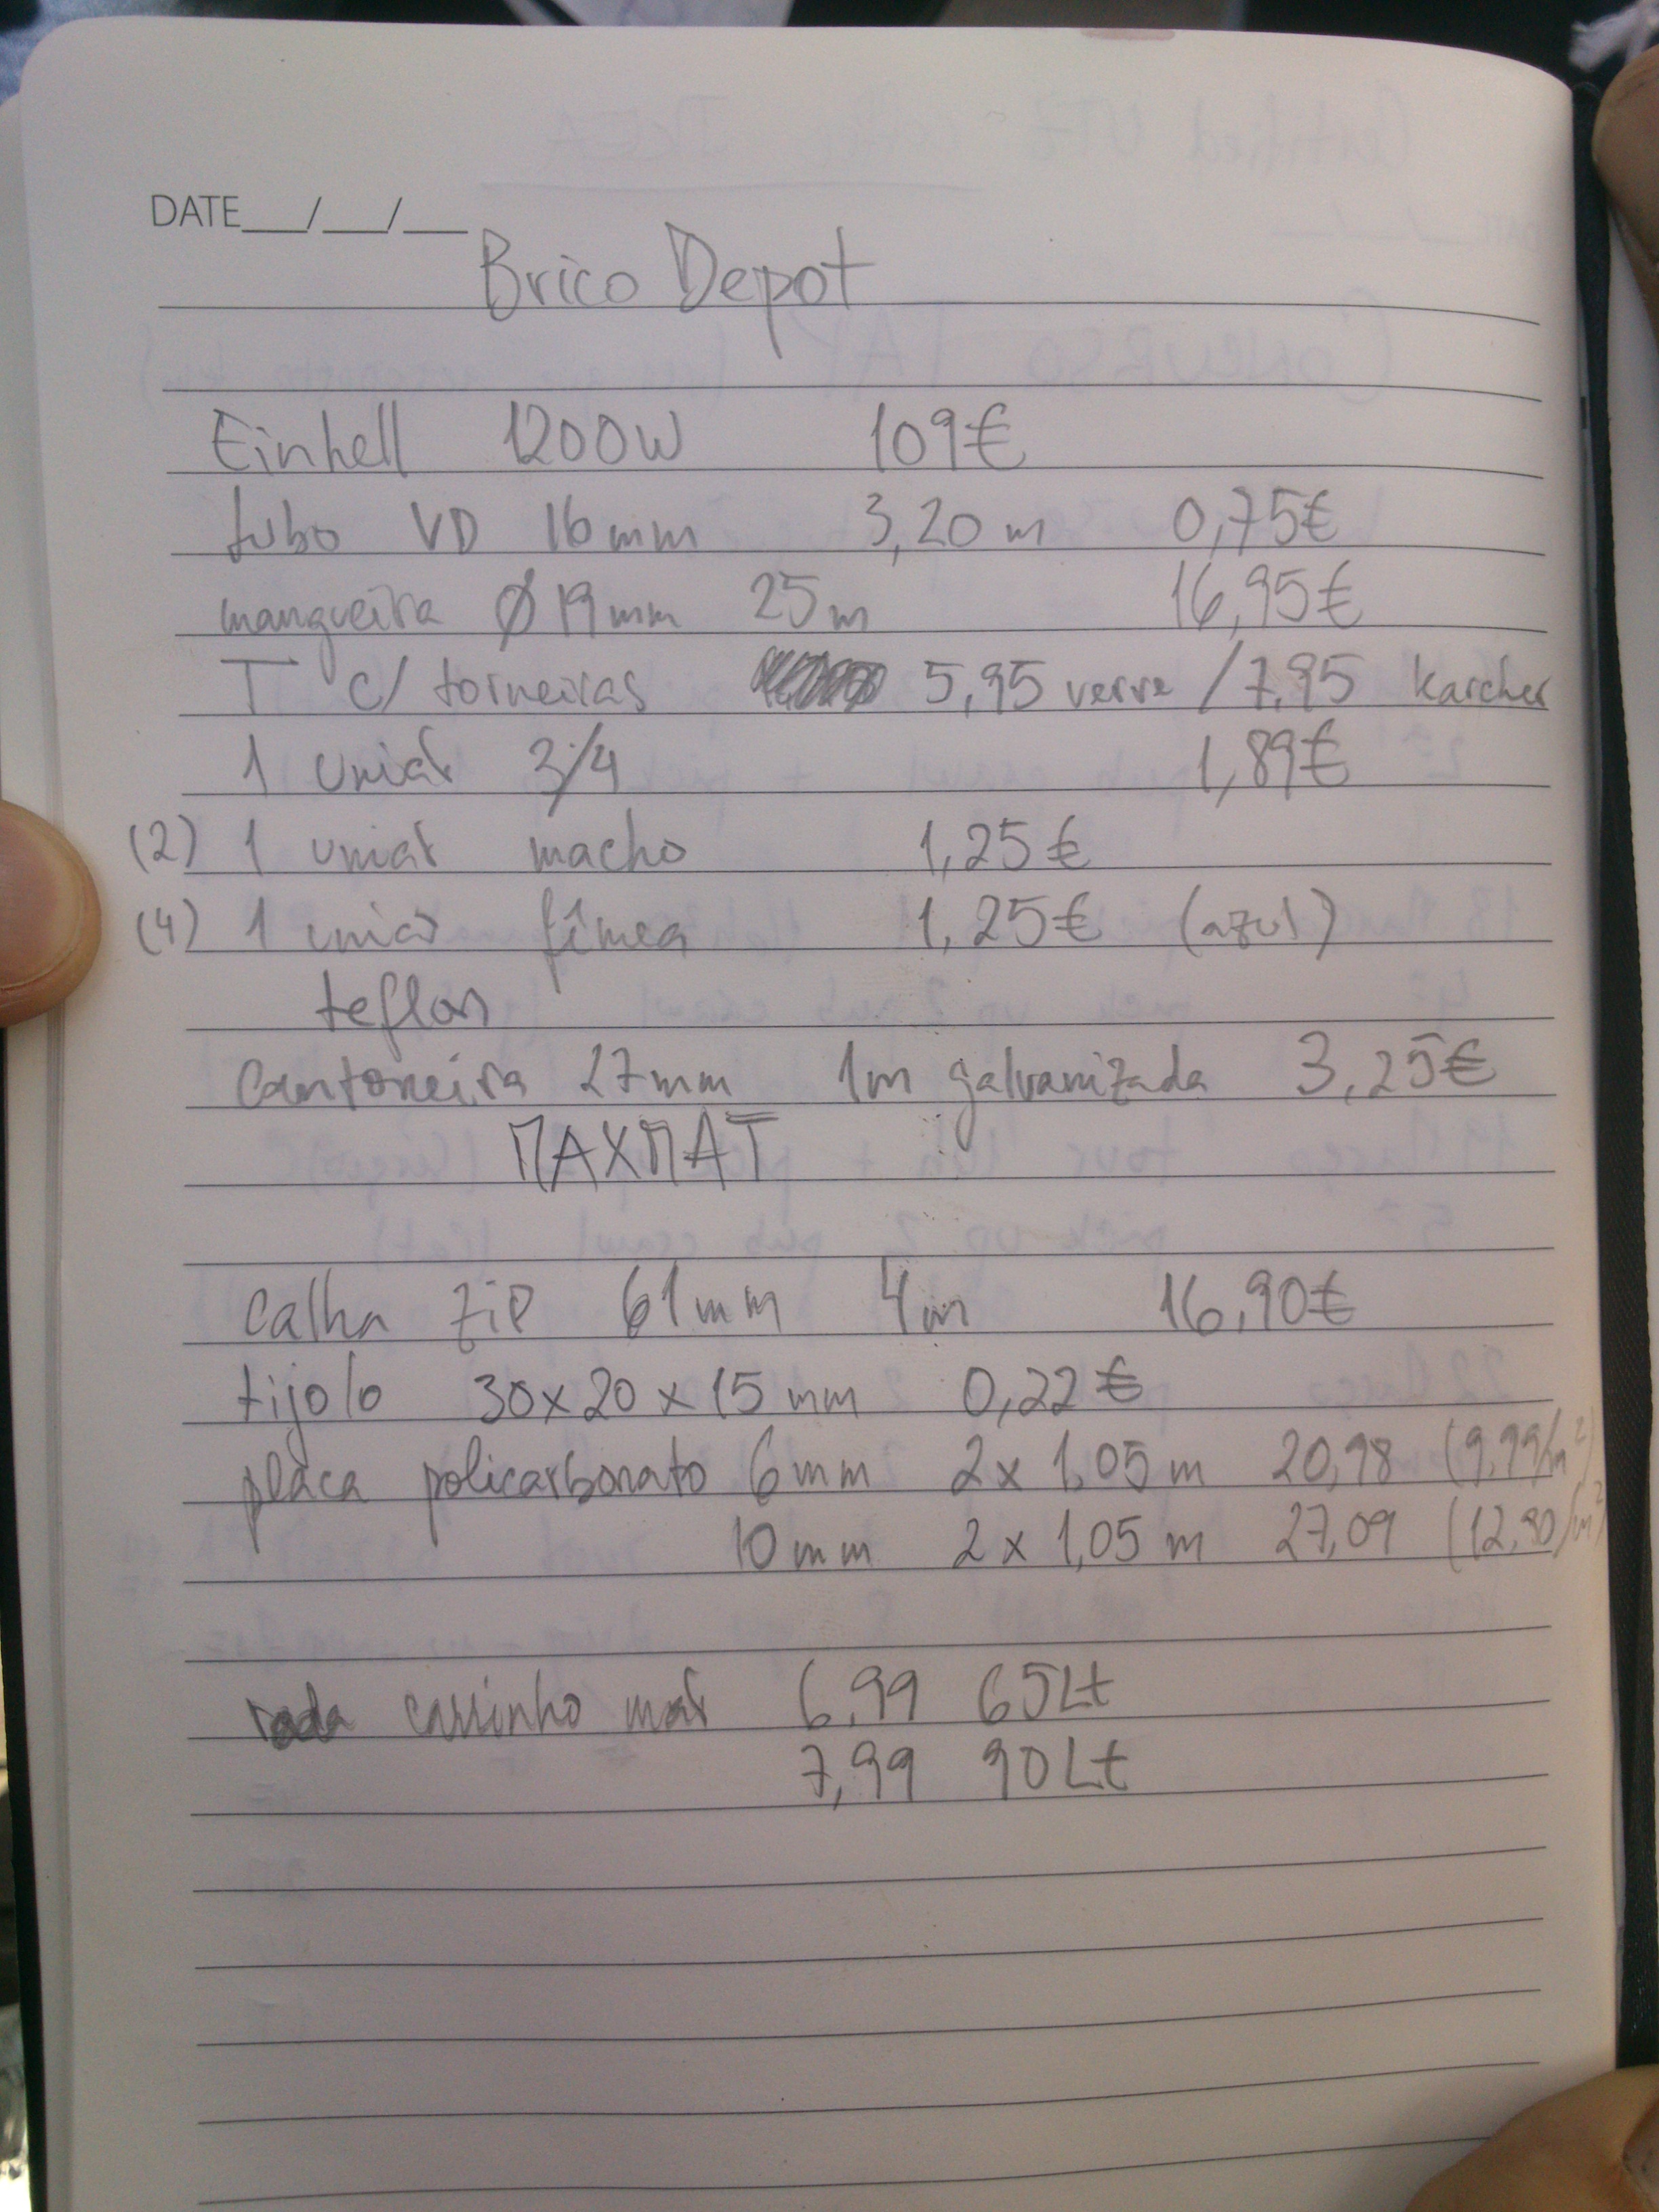 DATE__/__/__
Brico Depot
Einhell 1200W 109€
tubo VD 16mm 3,20m 0,75€
mangueira Ø19mm 25m 16,95€
T c/ torneiras 5,95 verve / 7,95 karcher
1 união 3/4 1,89€
(2) 1 união macho 1,25€
(4) 1 união fêmea 1,25€ (azul)
teflon
Cantoneira 27mm 1m galvanizada 3,25€
MAXMAT
Calha ZIP 61mm 4m 16,90€
tijolo 30x20x15mm 0,22€
placa policarbonato 6mm 2x1,05m 20,98 (9,99/m²)
10mm 2x1,05m 27,09 (12,90/m²)
roda carrinho mão 6,99 65Lt
7,99 90Lt